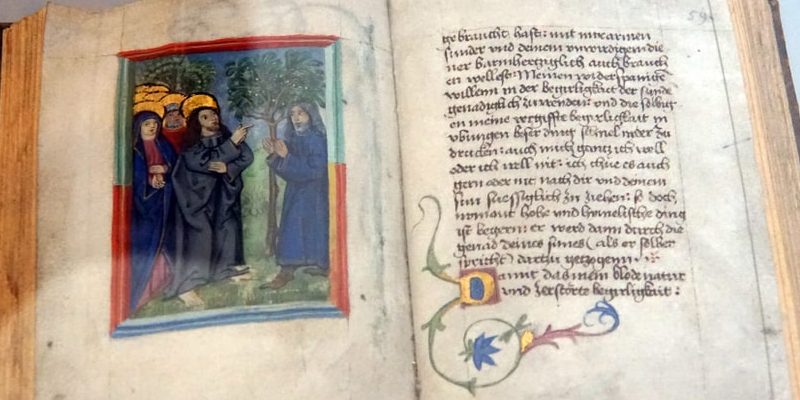 59
gebraucht hast: mit mir armen
sunder vnd deinem vnwirdigem die
ner barmhertziglich auch brauch
en wellest: Meinen widerspanigen
willenn in der begirligkeit der sunde
genadiglich zu wenden vnd die selbig
en meine vergiffte begirligkeit in
vbungen beser ding
drucken: auch mich gantz ich woll
oder ich woll nit: ich thue es auch
gern oder nit nach dir vnd deinem
sun zu ziehen: so doch
nymant hohe vnd himelische ding
ist begern: er werd dann durch die
genad deines sunes (als er selber
spricht) dartzu getzogenn
Damit das mein blode natur
vnd zerstörte begirligkeit: